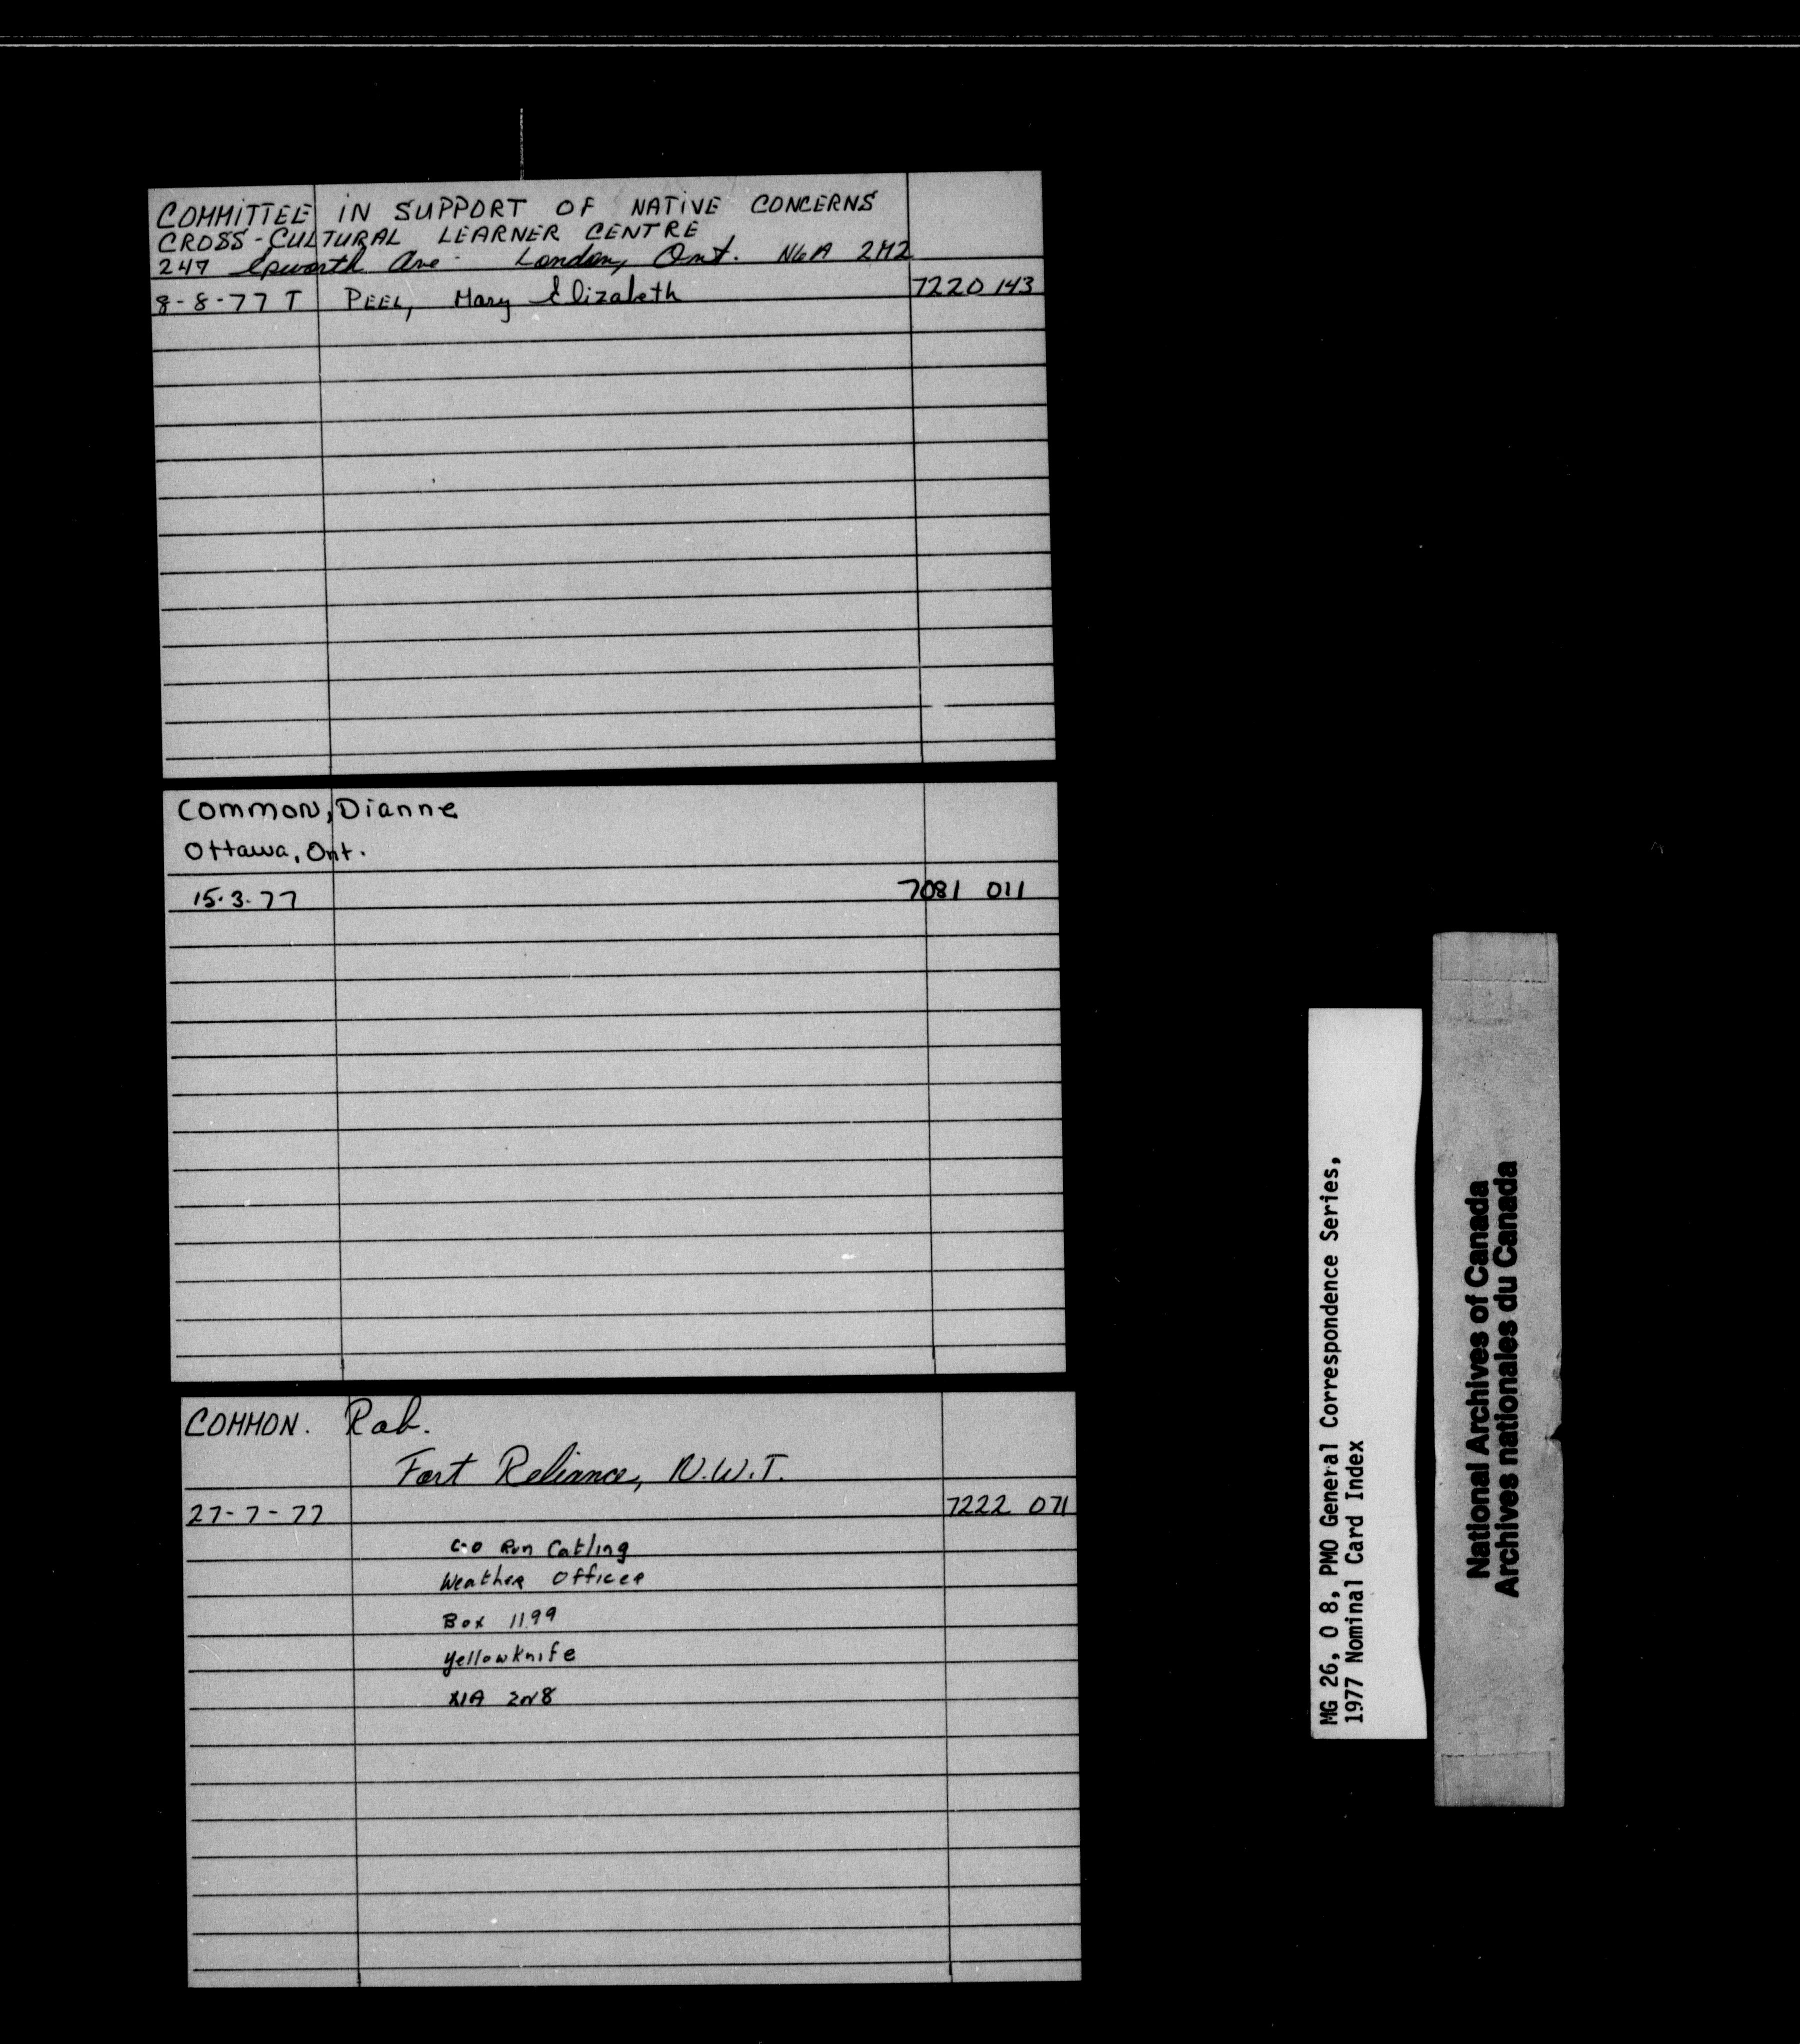 COMMITTEE IN SUPPORT OF NATIVE CONCERNS
CROSS-CULTURAL LEARNER CENTRE
247 Epworth Ave London, Ont. N6A 2M2
8-8-77 T PEEL, Mary Elizabeth 7220 143
Common, Dianne
Ottawa, Ont.
15.3.77 7081 011
COMMON. Rab.
Fort Reliance, N.W.T.
27-7-77 7222 071
c-o Ron Catling
Weather Officer
Box 1199
Yellowknife
X1A 2N8
MG 26, O 8, PMO General Correspondence Series,
1977 Nominal Card Index
National Archives of Canada
Archives nationales du Canada